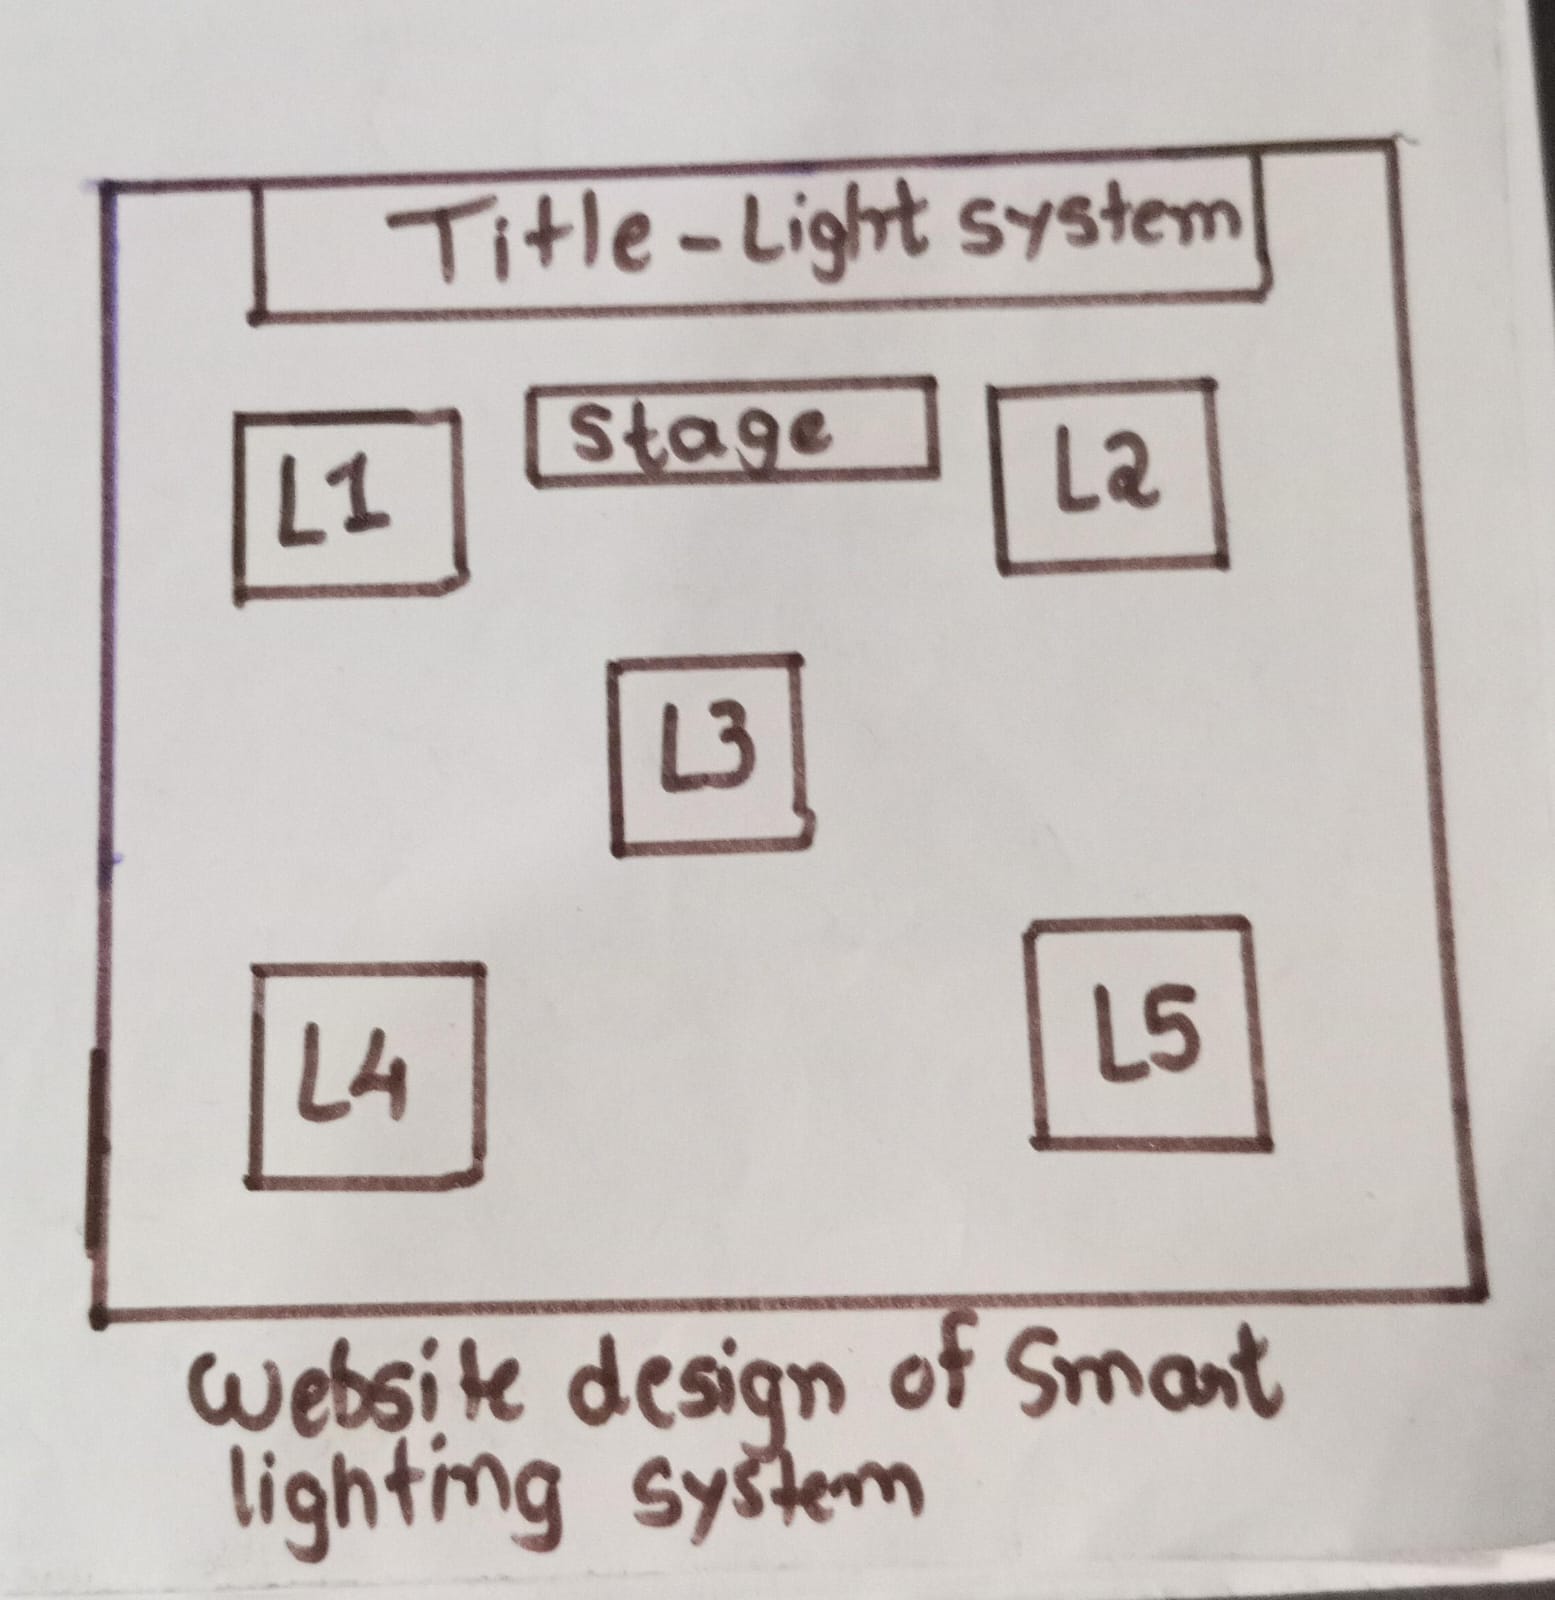 Title-Light system
L1
Stage
L2
L3
L4
L5
Website design of Smart
lighting system